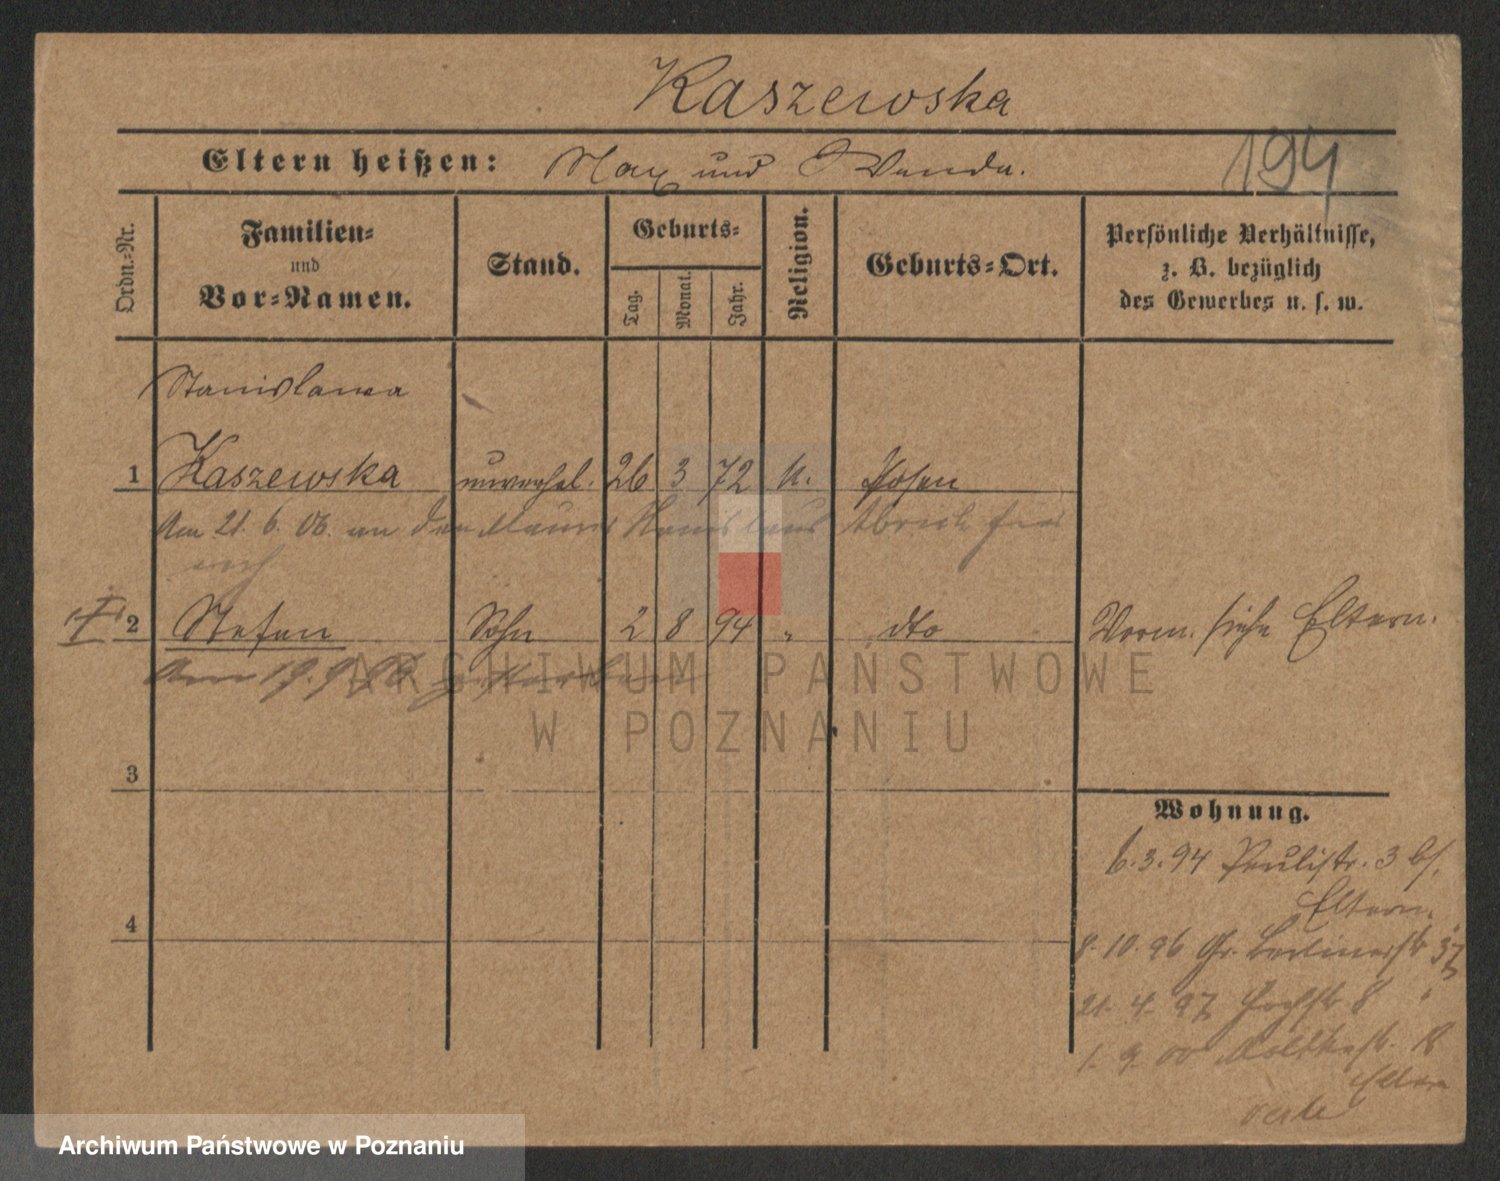 Kaszewska
Eltern heißen: Max und Wanda.
194
Ordn.-Nr.
Familien-
und
Vor-Namen.
Stand.
Geburts-
Tag.
Monat.
Jahr.
Religion.
Geburts-Ort.
Persönliche Verhältnisse,
z. B. bezüglich
des Gewerbes u. s. w.
Stanislawa
1 Kaszewska unverehel. 26 3 72 k. Posen
Am 21. 6. 06. an den
2 Stefan Sohn 2 8 94 " dto Vorm. siehe Eltern.
Am 19. 9. gestorben
3
Wohnung.
6.3.94 Paulistr. 3 bs.
Eltern.
4
8.10.96 Gr. Berlinerstr 37
21. 4. 97 8 "
1. 9. 00 Moltkestr. 18
Eltern
verte
ARCHIWUM PAŃSTWOWE
W POZNANIU
Archiwum Państwowe w Poznaniu